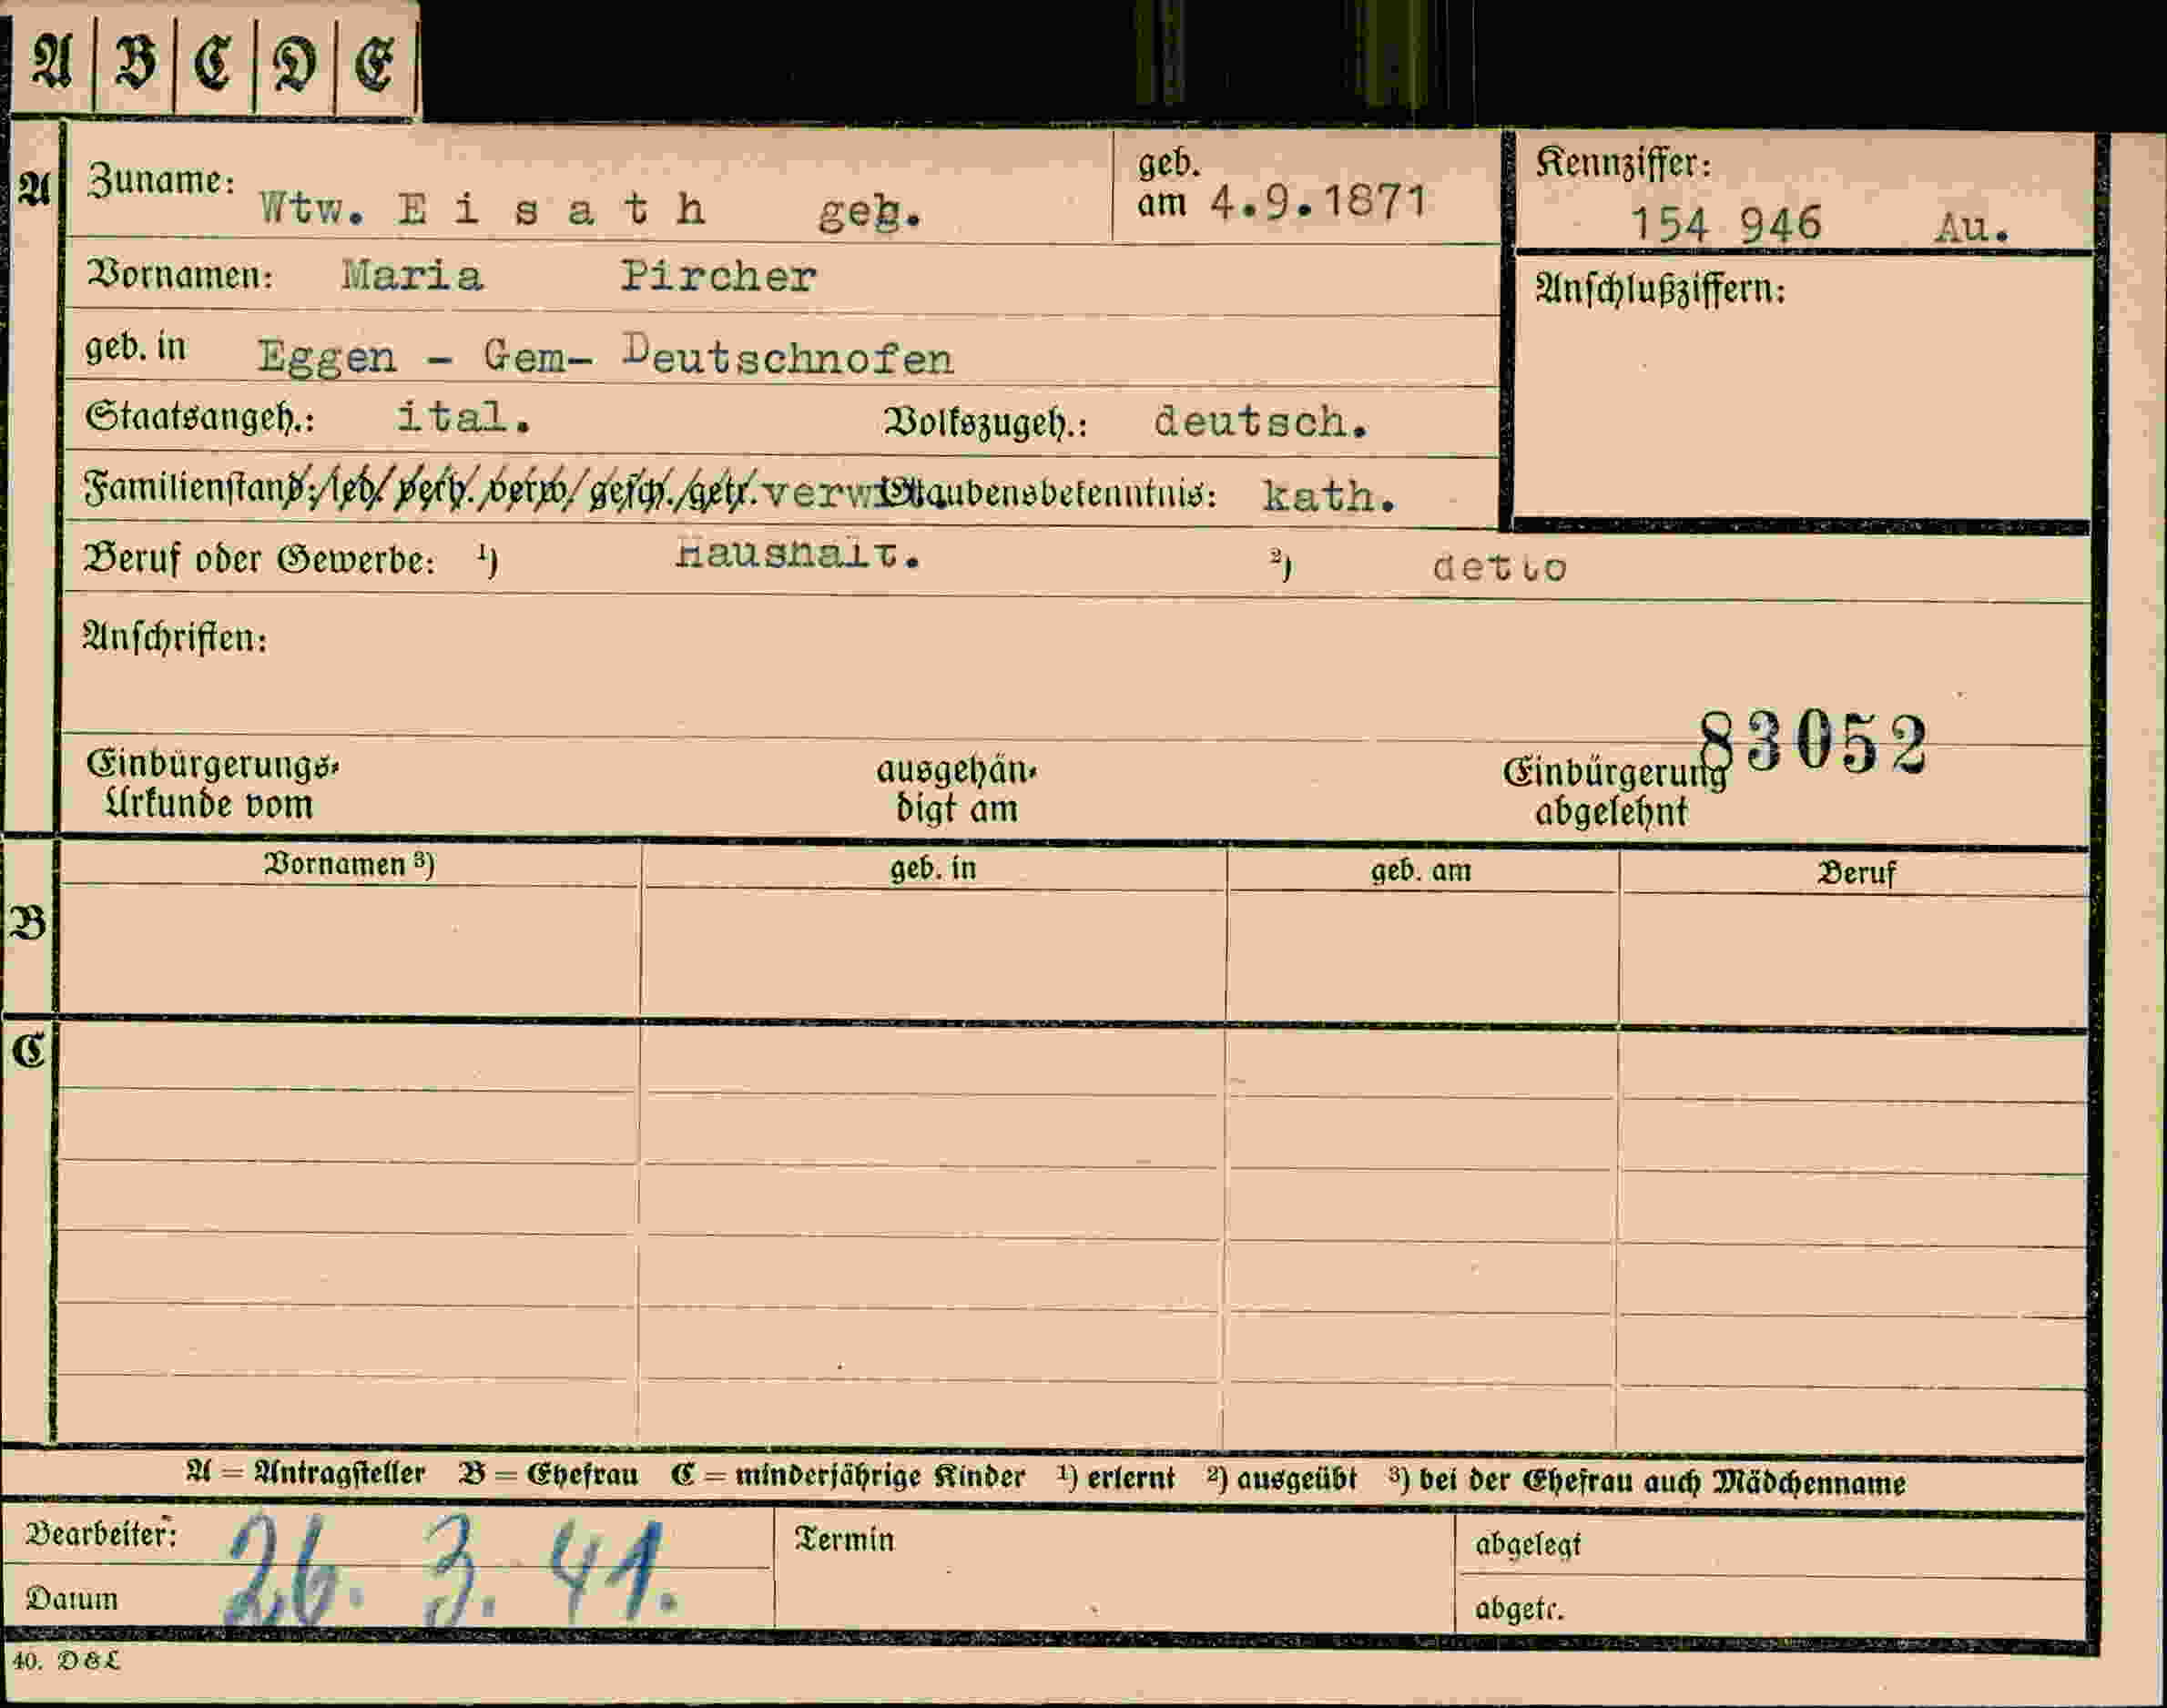 A B C D E
A
Zuname: Wtw. E i s a t h geb.
geb. am 4.9.1871
Kennziffer:
154 946 Au.
Vornamen: Maria Pircher
Anschlußziffern:
geb. in Eggen - Gem- Deutschnofen
Staatsangeh.: ital. Volkszugeh.: deutsch.
Familienstand: led. verh. verw. gesch. getr. verwit Glaubensbekenntnis: kath.
Beruf oder Gewerbe: ¹) Haushalt. ²) detto
Anschriften:
83052
Einbürgerungs- ausgehän- Einbürgerung
Urkunde vom digt am abgelehnt
Vornamen ³) geb. in geb. am Beruf
B
C
A = Antragsteller B = Ehefrau C = minderjährige Kinder ¹) erlernt ²) ausgeübt ³) bei der Ehefrau auch Mädchenname
Bearbeiter: Termin abgelegt
26. 3. 41.
Datum abgetr.
40. D & L